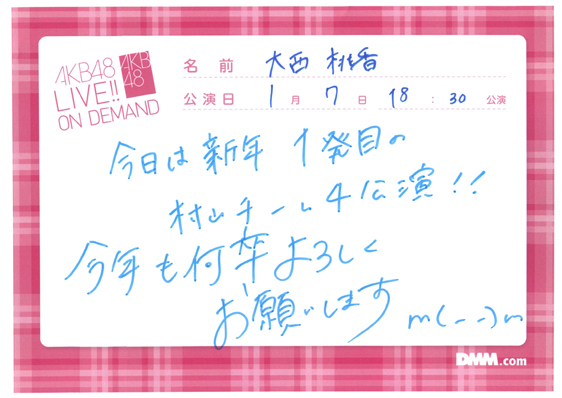 AKB48
LIVE!!
ON DEMAND
AKB
48
名前 大西 桃香
公演日 1月7日 18:30 公演
今日は新年 1発目の
村山チーム4公演!!
今年も何卒よろしく
お願いします m(_ _)m
DMM.com